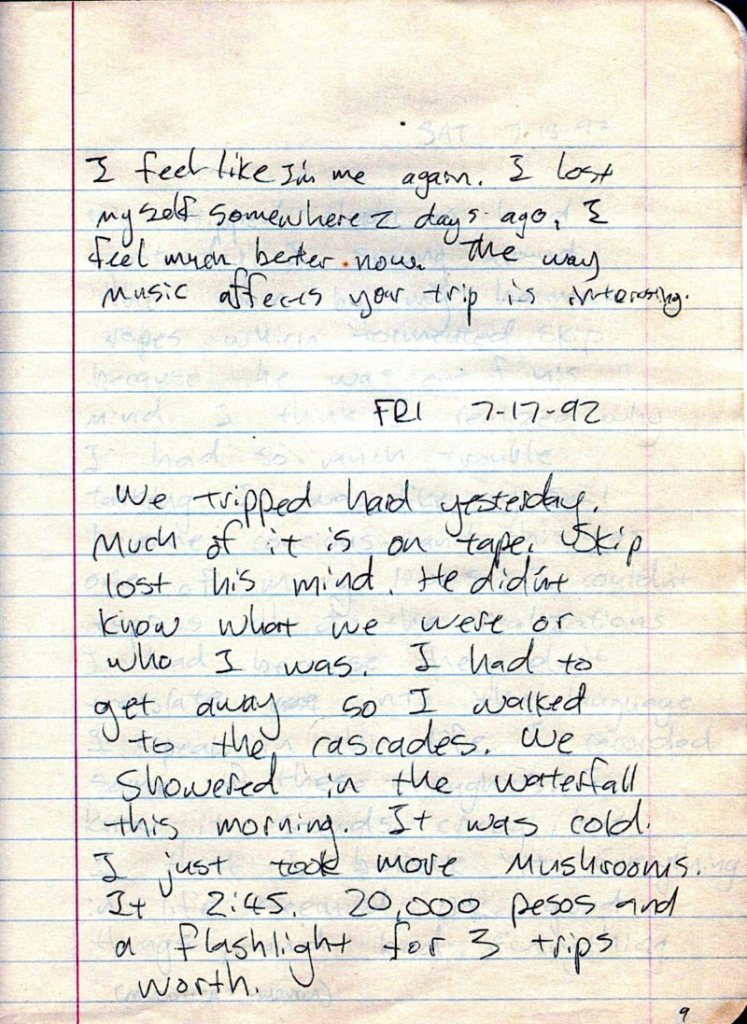 I feel like I'm me again. I lost
myself somewhere 2 days ago. I
feel much better now. The way
music affects your trip is interesing.
FRI 7-17-92
We tripped hard yesterday.
Much of it is on tape. Skip
lost his mind. He didn't
know what we were or
who I was. I had to
get away so I walked
to the cascades. We
showered in the waterfall
this morning. It was cold.
I just took more mushrooms.
It 2:45. 20,000 pesos and
a flashlight for 3 trips
worth.
9